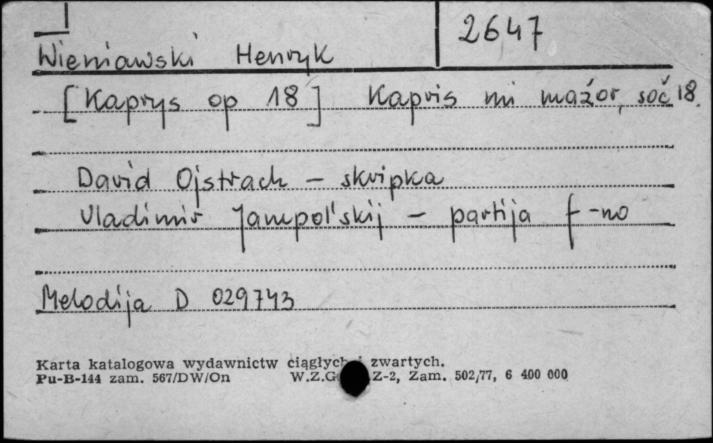 2647
Wieniawski Henryk
[Kaprys op 18] Kapris mi mažor, soč 18.
David Ojstrach - skripka
Vladimir Jampol'skij - partija f-no
Melodija D 029743
Karta katalogowa wydawnictw ciągłych i zwartych.
Pu-B-144 zam. 567/DW/On W.Z.G. Z-2, Zam. 502/77, 6 400 000